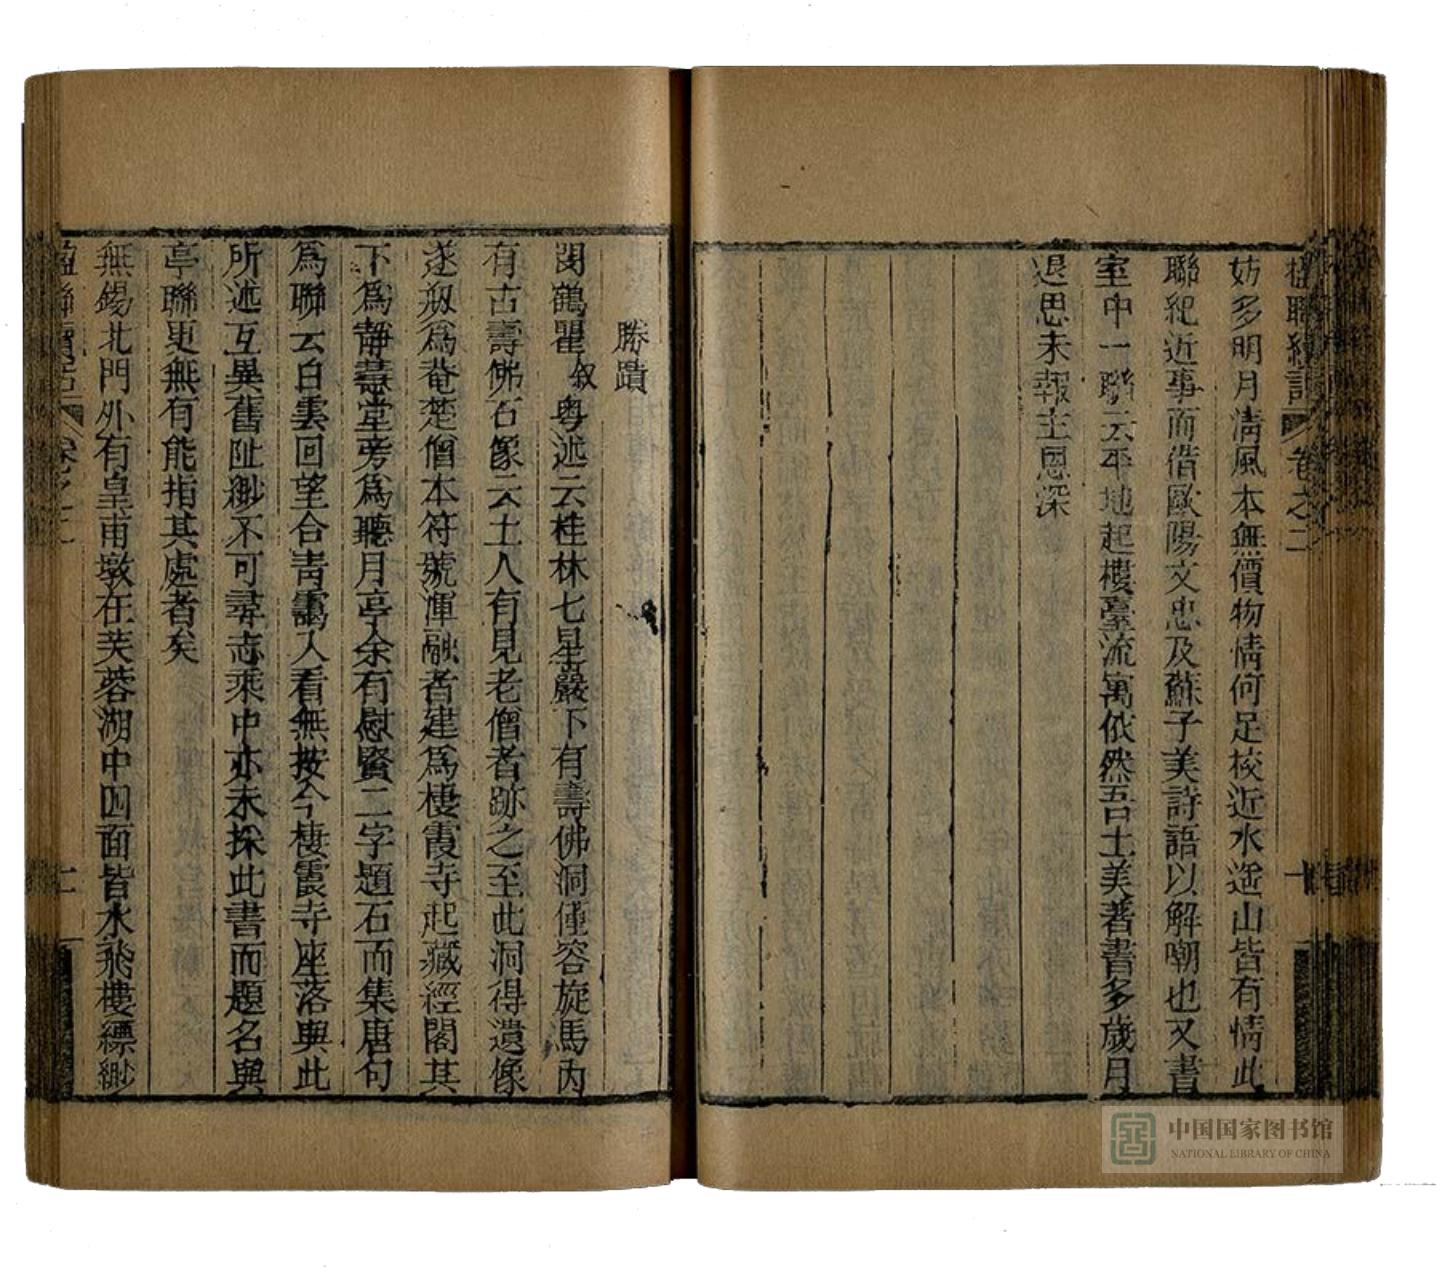 楹聯續話 卷之二
妨多明月清風本無價物情何足校近水遙山皆有情此
聯紀近事而借歐陽文忠及蘇子美詩語以解嘲也又書
室中一聯云平地起樓臺流寓依然吾土美著書多歲月
退思未報主恩深
勝蹟
閔鶴瞿叙粵述云桂林七星巖下有壽佛洞僅容旋馬內
有古壽佛石像云土人有見老僧者跡之至此洞得遺像
遂剏爲菴楚僧本符號渾融者建爲棲霞寺起藏經閣其
下爲靜薹堂旁爲聽月亭余有慰賢二字題石而集唐句
爲聯云白雲回望合青靄入看無按今棲霞寺座落與此
所述互異舊阯緲不可尋志乘中亦未採此書而題名與
亭聯更無有能指其處者矣
無錫北門外有皇甫墩在芙蓉湖中四面皆水飛樓縹緲
楹聯續話 卷之二
中国国家图书馆
NATIONAL LIBRARY OF CHINA